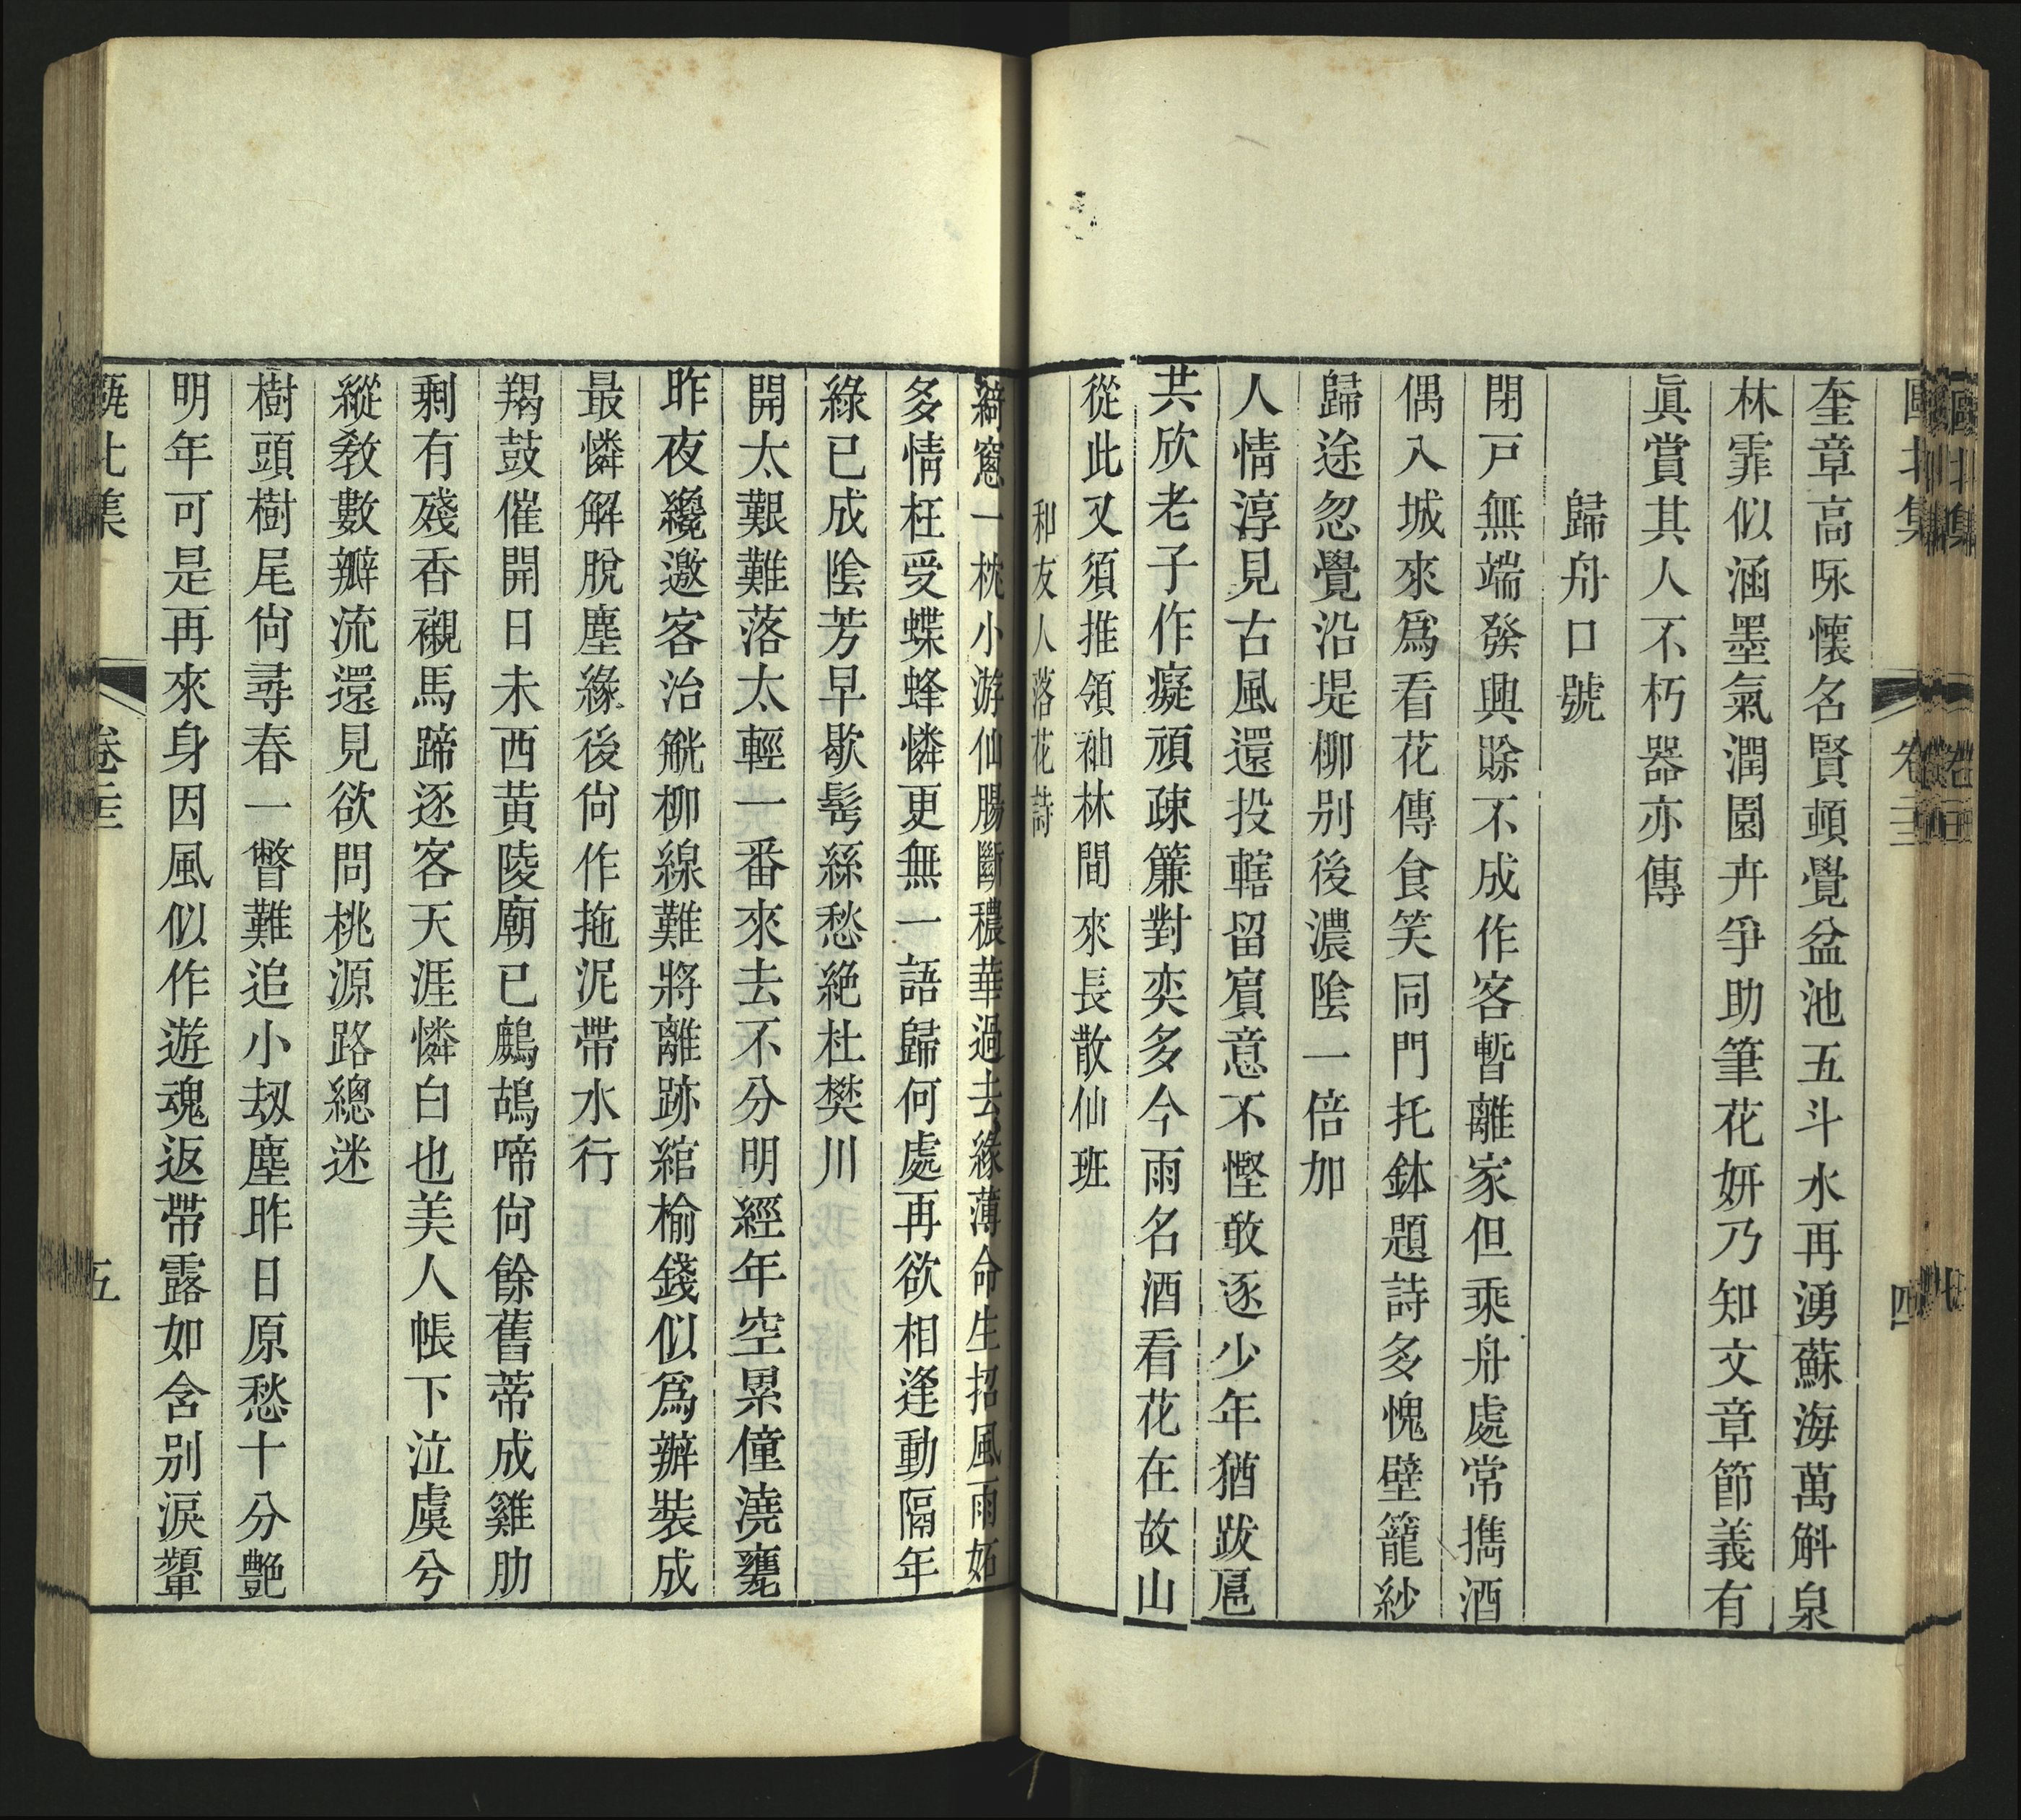 甌北集 卷三 四
奎章高咏懷名賢頓覺盆池五斗水再湧蘇海萬斛泉
林霏似涵墨氣潤園卉爭助筆花妍乃知文章節義有
眞賞其人不朽器亦傳
歸舟口號
閉戸無端發興賒不成作客暫離家但乘舟處常攜酒
偶入城來爲看花傳食笑同門托鉢題詩多愧壁籠紗
歸途忽覺沿堤柳別後濃陰一倍加
人情淳見古風還投轄留賓意不慳敢逐少年猶跋扈
共欣老子作癡頑疎簾對奕多今雨名酒看花在故山
從此又須推領袖林間來長散仙班
和友人落花詩
綺窻一枕小游仙腸斷穠華過去緣薄命生招風雨妬
多情枉受蝶蜂憐更無一語歸何處再欲相逢動隔年
綠已成陰芳早歇髩絲愁絶杜樊川
開太艱難落太輕一番來去不分明經年空累僮澆甕
昨夜纔邀客治觥柳線難將離跡綰榆錢似爲辦裝成
最憐解脫塵緣後尙作拖泥帶水行
羯鼓催開日未西黃陵廟已鷓鴣啼尙餘舊蒂成雞肋
剩有殘香襯馬蹄逐客天涯憐白也美人帳下泣虞兮
縱敎數瓣流還見欲問桃源路總迷
樹頭樹尾尙尋春一瞥難追小刼塵昨日原愁十分艷
明年可是再來身因風似作遊魂返帶露如含別淚顰
甌北集 卷三 五